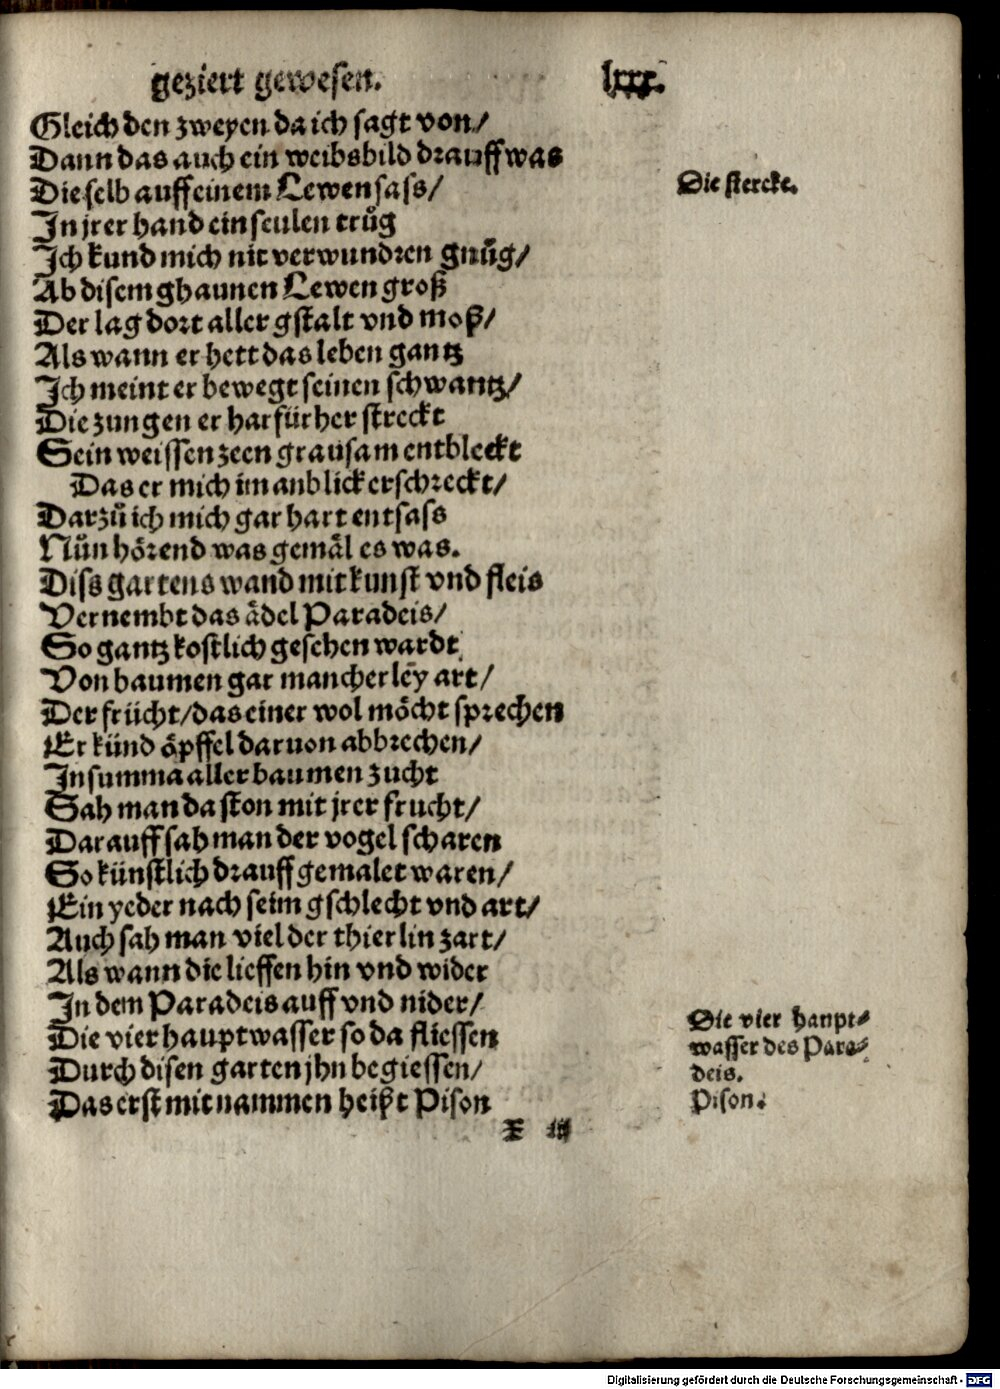 geziert gewesen. lxxx.
Gleich den zweyen da ich sagt von/
Dann das auch ein weibsbild drauff was
Dieselb auff einem Lewen sass/
Die stercke.
In jrer hand ein seulen trůg
Ich kund mich nit verwundren gnůg/
Ab disem ghaunen Lewen groß
Der lag dort aller gstalt vnd moß/
Als wann er hett das leben gantz
Ich meint er bewegt seinen schwantz/
Die zungen er harfür her streckt
Sein weissen zeen grausam entbleckt
Das er mich im anblick erschreckt/
Darzů ich mich gar hart entsass
Nůn hörend was gemäl es was.
Diss gartens wand mit kunst vnd fleis
Vernembt das ädel Paradeis/
So gantz kostlich gesehen wardt
Von baumen gar mancherley art/
Der frücht/das einer wol möcht sprechen
Er künd öpffel daruon abbrechen/
In summa aller baumen zucht
Sah man da ston mit jrer frucht/
Darauff sah man der vogel scharen
So künstlich drauff gemalet waren/
Ein yeder nach seim gschlecht vnd art/
Auch sah man viel der thierlin zart/
Als wann die lieffen hin vnd wider
In dem Paradeis auff vnd nider/
Die vier hauptwasser so da fliessen
Durch disen garten jhn begiessen/
Das erst mit nammen heißt Pison
Die vier haupt-
wasser des Para-
deis.
Pison.
X iii
Digitalisierung gefördert durch die Deutsche Forschungsgemeinschaft - DFG